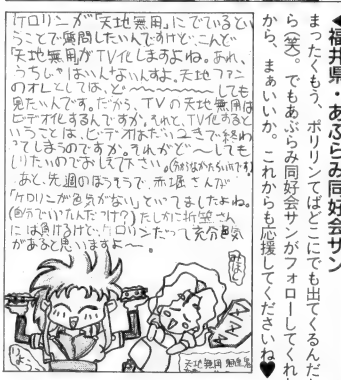 ◀福井県・あぶらみ同好会サン
まったくもう、ポリリンてばどこにでも出てくるんだ
ら(笑)。でもあぶらみ同好会サンがフォローしてくれ
から、まぁいいか。これからも応援してくださいね♥
「ケロリンが「天地無用」にでているとい
うことで質問したいんですけど、こんど
「天地無用」がTV化しますよね。あれ、
うちじゃはいんないんすよ。天地ファン
のオレとしては、ど〜〜〜しても
見たいんです。だから、TVの天地無用は
ビデオ化するんですか。それと、TV化すると
いうことは、ビデオはだい2きで終わ
ってしまうのですか。それがど〜しても
しりたいのでおしえて下さい。(分かなかったらいいです)
あと、先週のほうそうで、赤堀さんが
「ケロリンが色気がない」といってましたよね。
(自分でいったんだっけ?)たしかに折笠さん
には負けるけど、ケロリンだって充分色気
があると思いますよ〜。
天地無用